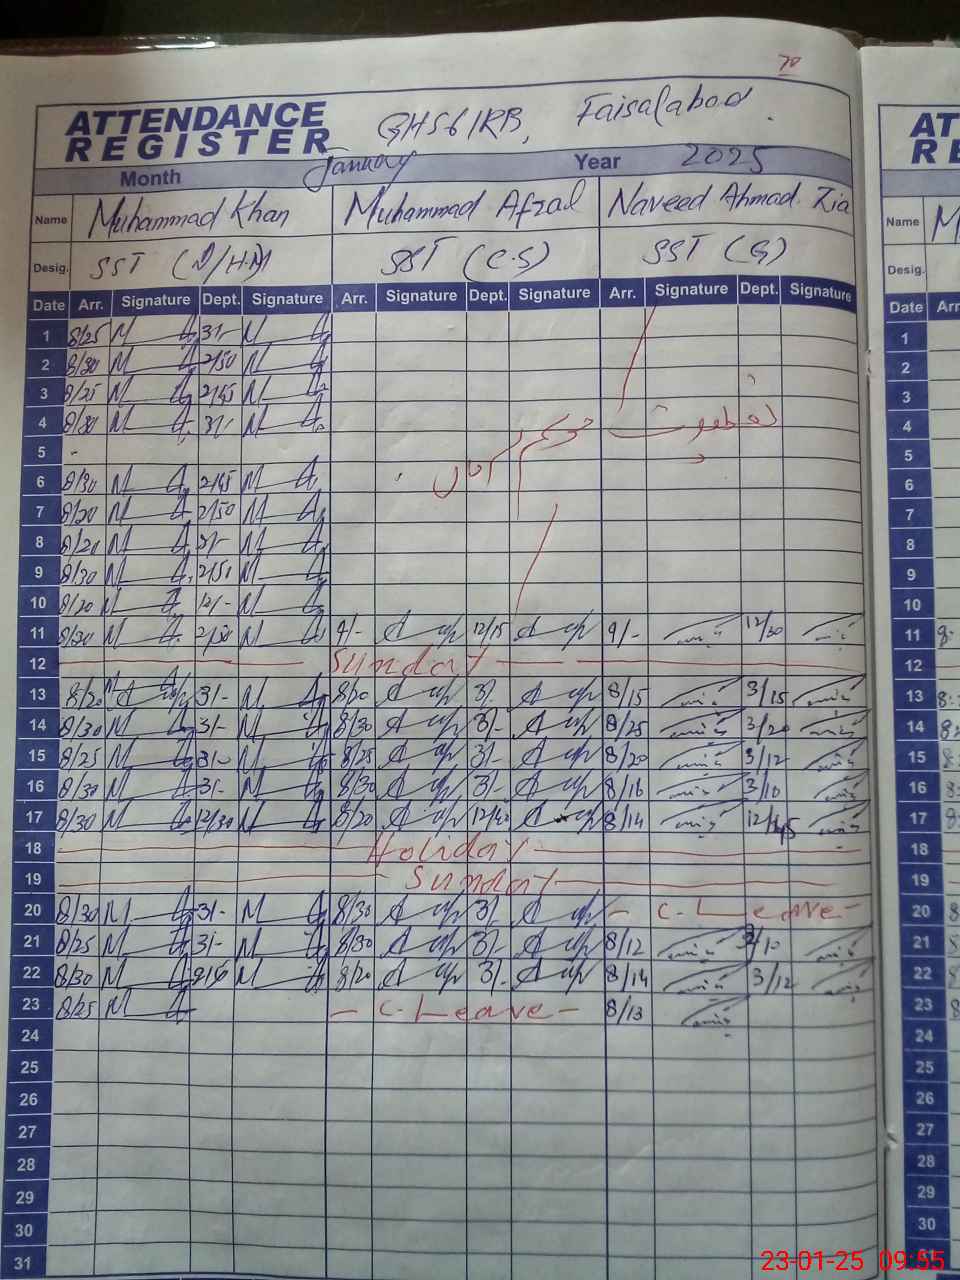 70
ATTENDANCE REGISTER GHS 61RB, Faisalabad.
Month January Year 2025
Name Muhammad Khan Muhammad Afzal Naveed Ahmad Zia
Desig. SST (I/H.M) SST (C.S) SST (G)
Date Arr. Signature Dept. Signature Arr. Signature Dept. Signature Arr. Signature Dept. Signature
1 8/25 3/-
2 8/30 2/50
3 8/25 2/45
4 8/30 3/- موسم تعطیلات
5
6 8/30 2/45
7 8/20 2/50
8 8/20 3/-
9 8/30 2/50
10 8/20 12/-
11 8/30 2/30 9/- 12/15 9/- 12/30
12 Sunday
13 8/20 3/- 8/20 3/- 8/15 3/15
14 8/30 3/- 8/30 3/- 8/25 3/20
15 8/25 3/- 8/25 3/- 8/20 3/12
16 8/30 3/- 8/30 3/- 8/16 3/10
17 8/30 12/30 8/20 12/40 8/14 12/45
18 Holiday
19 Sunday
20 8/30 3/- 8/30 3/- C-Leave
21 8/25 3/- 8/30 3/- 8/12 3/10
22 8/30 8/20 3/- 8/14 3/12
23 8/25 C-Leave 8/13
24
25
26
27
28
29
30
31
AT
RE
Name M
Desig.
Date Arr
1
2
3
4
5
6
7
8
9
10
11 8:
12
13
14
15
16
17
18
19
20
21
22
23
24
25
26
27
28
29
30
31
23-01-25 09:55